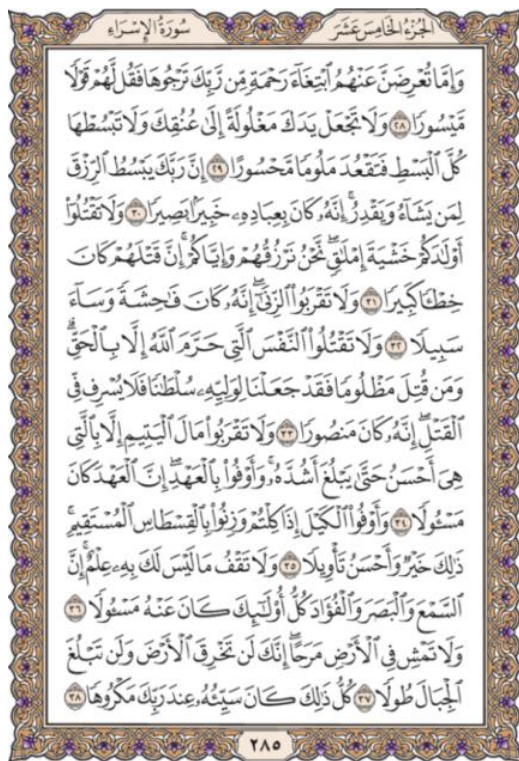 الجُزْءُ الخَامِسَ عَشَرَ سُورَةُ الإِسْرَاءِ
وَإِمَّا تُعْرِضَنَّ عَنْهُمُ ٱبْتِغَآءَ رَحْمَةٍ مِّن رَّبِّكَ تَرْجُوهَا فَقُل لَّهُمْ قَوْلًا
مَّيْسُورًا ٢٨ وَلَا تَجْعَلْ يَدَكَ مَغْلُولَةً إِلَىٰ عُنُقِكَ وَلَا تَبْسُطْهَا
كُلَّ ٱلْبَسْطِ فَتَقْعُدَ مَلُومًا مَّحْسُورًا ٢٩ إِنَّ رَبَّكَ يَبْسُطُ ٱلرِّزْقَ
لِمَن يَشَآءُ وَيَقْدِرُۚ إِنَّهُۥ كَانَ بِعِبَادِهِۦ خَبِيرًۢا بَصِيرًا ٣٠ وَلَا تَقْتُلُوٓا۟
أَوْلَٰدَكُمْ خَشْيَةَ إِمْلَٰقٍۖ نَّحْنُ نَرْزُقُهُمْ وَإِيَّاكُمْۚ إِنَّ قَتْلَهُمْ كَانَ
خِطْـًٔا كَبِيرًا ٣١ وَلَا تَقْرَبُوا۟ ٱلزِّنَىٰٓۖ إِنَّهُۥ كَانَ فَٰحِشَةً وَسَآءَ
سَبِيلًا ٣٢ وَلَا تَقْتُلُوا۟ ٱلنَّفْسَ ٱلَّتِى حَرَّمَ ٱللَّهُ إِلَّا بِٱلْحَقِّۗ
وَمَن قُتِلَ مَظْلُومًا فَقَدْ جَعَلْنَا لِوَلِيِّهِۦ سُلْطَٰنًا فَلَا يُسْرِف فِّى
ٱلْقَتْلِۖ إِنَّهُۥ كَانَ مَنصُورًا ٣٣ وَلَا تَقْرَبُوا۟ مَالَ ٱلْيَتِيمِ إِلَّا بِٱلَّتِى
هِىَ أَحْسَنُ حَتَّىٰ يَبْلُغَ أَشُدَّهُۥۚ وَأَوْفُوا۟ بِٱلْعَهْدِۖ إِنَّ ٱلْعَهْدَ كَانَ
مَسْـُٔولًا ٣٤ وَأَوْفُوا۟ ٱلْكَيْلَ إِذَا كِلْتُمْ وَزِنُوا۟ بِٱلْقِسْطَاسِ ٱلْمُسْتَقِيمِۚ
ذَٰلِكَ خَيْرٌ وَأَحْسَنُ تَأْوِيلًا ٣٥ وَلَا تَقْفُ مَا لَيْسَ لَكَ بِهِۦ عِلْمٌۚ إِنَّ
ٱلسَّمْعَ وَٱلْبَصَرَ وَٱلْفُؤَادَ كُلُّ أُو۟لَٰٓئِكَ كَانَ عَنْهُ مَسْـُٔولًا ٣٦
وَلَا تَمْشِ فِى ٱلْأَرْضِ مَرَحًاۖ إِنَّكَ لَن تَخْرِقَ ٱلْأَرْضَ وَلَن تَبْلُغَ
ٱلْجِبَالَ طُولًا ٣٧ كُلُّ ذَٰلِكَ كَانَ سَيِّئُهُۥ عِندَ رَبِّكَ مَكْرُوهًا ٣٨
٢٨٥